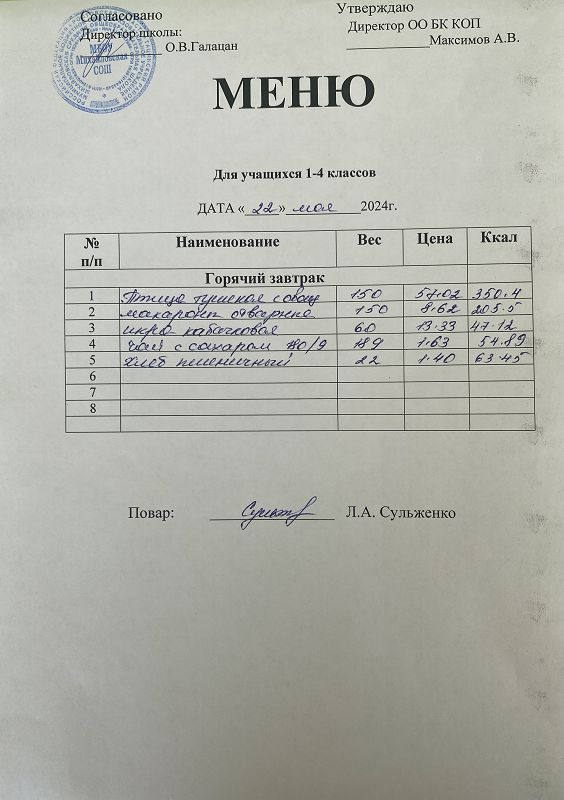 Согласовано Утверждаю
Директор школы: Директор ОО БК КОП
О.В.Галацан Максимов А.В.
МБОУ
Михайловская
СОШ
МЕНЮ
Для учащихся 1-4 классов
ДАТА « 22 » мая 2024г.
№ п/п Наименование Вес Цена Ккал
Горячий завтрак
1 Птица тушеная с овощ 150 57.02 350.4
2 макароны отварные 150 8.62 205.5
3 икра кабачковая 60 13.33 47.12
4 чай с сахаром 180/9 189 1.63 54.89
5 хлеб пшеничный 22 1.40 63.45
6
7
8
Повар: Л.А. Сульженко